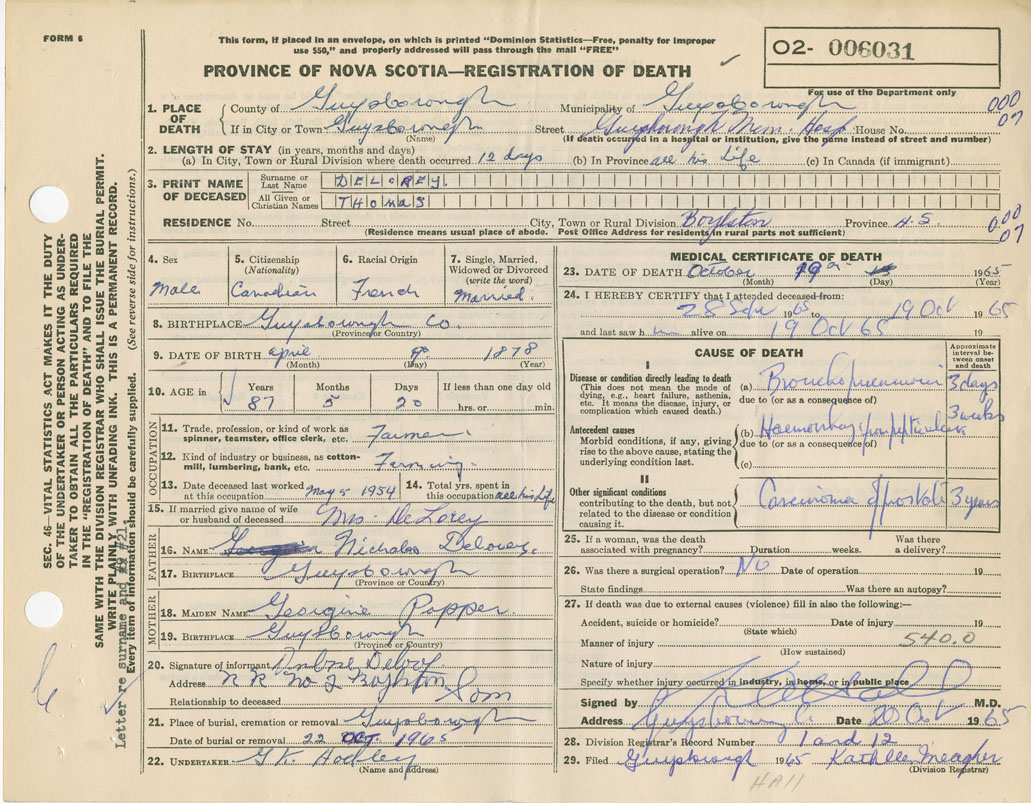 FORM 6
This form, if placed in an envelope, on which is printed "Dominion Statistics—Free, penalty for improper
use $50," and properly addressed will pass through the mail "FREE"
02- 006031
PROVINCE OF NOVA SCOTIA—REGISTRATION OF DEATH
For use of the Department only
1. PLACE OF DEATH County of Guysborough Municipality of Guysborough 000 07
If in City or Town Guysborough Street Guysborough Mem. Hosp House No.
(Name) (If death occurred in a hospital or institution, give the name instead of street and number)
2. LENGTH OF STAY (in years, months and days)
(a) In City, Town or Rural Division where death occurred 12 days (b) In Province all his Life (c) In Canada (if immigrant)
3. PRINT NAME OF DECEASED Surname or Last Name DELOREY.
All Given or Christian Names THOMAS
RESIDENCE No. Street City, Town or Rural Division Boylston Province N.S. 000 07
(Residence means usual place of abode. Post Office Address for residents in rural parts not sufficient)
4. Sex Male
5. Citizenship (Nationality) Canadian
6. Racial Origin French
7. Single, Married, Widowed or Divorced (write the word) Married.
8. BIRTHPLACE Guysborough Co.
(Province or Country)
9. DATE OF BIRTH April 1878
(Month) (Day) (Year)
10. AGE in Years 87 Months 5 Days 20 If less than one day old hrs. or min.
OCCUPATION
11. Trade, profession, or kind of work as spinner, teamster, office clerk, etc. Farmer
12. Kind of industry or business, as cotton-mill, lumbering, bank, etc. Farming.
13. Date deceased last worked at this occupation May 5 1954 14. Total yrs. spent in this occupation all his life
15. If married give name of wife or husband of deceased Mrs. DeLorey
FATHER
16. NAME Nicholas Delorey.
17. BIRTHPLACE Guysborough
(Province or Country)
MOTHER
18. MAIDEN NAME Georgine Popper.
19. BIRTHPLACE Guysborough
(Province or Country)
20. Signature of informant Ambrose Delory
Address R R No 2 Boylston
Relationship to deceased Son
21. Place of burial, cremation or removal Guysborough
Date of burial or removal 22 OCT. 1965
22. UNDERTAKER G.K.
(Name and address)
MEDICAL CERTIFICATE OF DEATH
23. DATE OF DEATH October 19 1965
(Month) (Day) (Year)
24. I HEREBY CERTIFY that I attended deceased from:
28 Sept 1965 to 19 Oct 1965
and last saw h im alive on 19 Oct 65 19
CAUSE OF DEATH
Approximate interval between onset and death
I
Disease or condition directly leading to death
(This does not mean the mode of dying, e.g., heart failure, asthenia, etc. It means the disease, injury, or complication which caused death.)
(a) Bronchopneumonia 3 days
due to (or as consequence of)
Antecedent causes
Morbid conditions, if any, giving rise to the above cause, stating the underlying condition last.
(b) Haemorrhage from peptic ulcer 3 weeks
due to (or as consequence of)
(c)
II
Other significant conditions
contributing to the death, but not related to the disease or condition causing it.
Carcinoma of prostate 3 years
25. If a woman, was the death associated with pregnancy? Duration weeks. Was there a delivery?
26. Was there a surgical operation? No Date of operation 19
State findings Was there an autopsy?
27. If death was due to external causes (violence) fill in also the following:—
Accident, suicide or homicide? Date of injury 19
(State which)
Manner of injury 540.0
(How sustained)
Nature of injury
Specify whether injury occurred in industry, in home, or in public place
Signed by M.D.
Address Guysborough Date 20 Oct 1965
28. Division Registrar's Record Number 1 and 12
29. Filed Guysborough 1965 Kathleen Meagher
(Division Registrar)
HAll
SEC. 46—VITAL STATISTICS ACT MAKES IT THE DUTY
OF THE UNDERTAKER OR PERSON ACTING AS UNDER-
TAKER TO OBTAIN ALL THE PARTICULARS REQUIRED
IN THE "REGISTRATION OF DEATH" AND TO FILE THE
SAME WITH THE DIVISION REGISTRAR WHO SHALL ISSUE THE BURIAL PERMIT.
WRITE PLAINLY WITH UNFADING INK. THIS IS A PERMANENT RECORD.
Every item of information should be carefully supplied. (See reverse side for instructions.)
Letter re surname and #21.